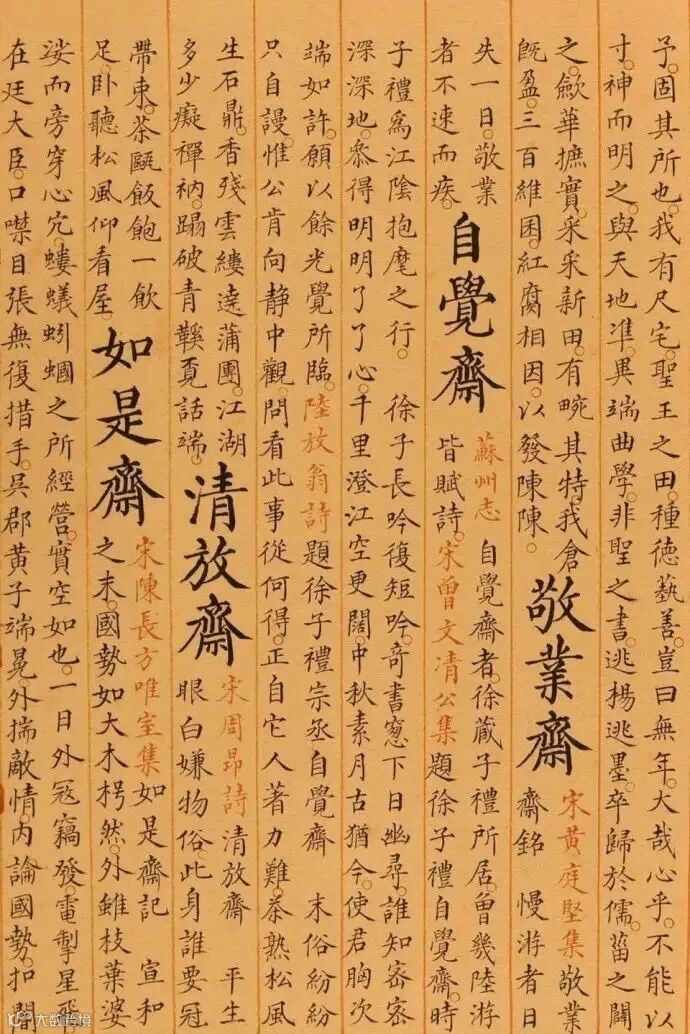 予。固其所也。我有尺宅。聖王之田。種德藝善。豈曰無年。大哉心乎。不能以
寸。神而明之。與天地準。異端曲學。非聖之書。逃楊逃墨。卒歸於儒。菑之闢
之。歛華摭實。采采新田。有畹其特。我倉
既盈。三百維囷。紅腐相因。以發陳陳。
敬業齋
宋黃庭堅集敬業
齋銘 慢游者日
失一日。敬業
者不速而疾。
自覺齋
蘇州志 自覺齋者。徐蕆子禮所居。曾幾陸游
皆賦詩。宋曾文清公集題徐子禮自覺齋。時
子禮爲江陰抱麾之行。 徐子長吟復短吟。奇書窻下日幽尋。誰知密密
深深地。叅得明明了了心。千里澄江空更闊。中秋素月古猶今。使君胸次
端如許。願以餘光覺所臨。陸放翁詩題徐子禮宗丞自覺齋 末俗紛紛
只自謾。惟公肯向静中觀。問看此事從何得。正自它人著力難。茶熟松風
生石鼎。香殘雲縷遶蒲團。江湖
多少癡禪衲。蹋破青鞵覔話端。
清放齋
宋周昂詩清放齋 平生
眼白嫌物俗。此身誰要冠
帶束。茶甌飯飽一飲
足。卧聽松風仰看屋。
如是齋
宋陳長方唯室集如是齋記 宣和
之末。國勢如大木枵然。外雖枝葉婆
娑而旁穿心宂。螻蟻蚓蟈之所經營。實空如也。一日外冦竊發。電掣星飛
在廷大臣。口噤目張無復措手。吳郡黃子端晃。外揣敵情。内論國勢。扣閽
大数跨境